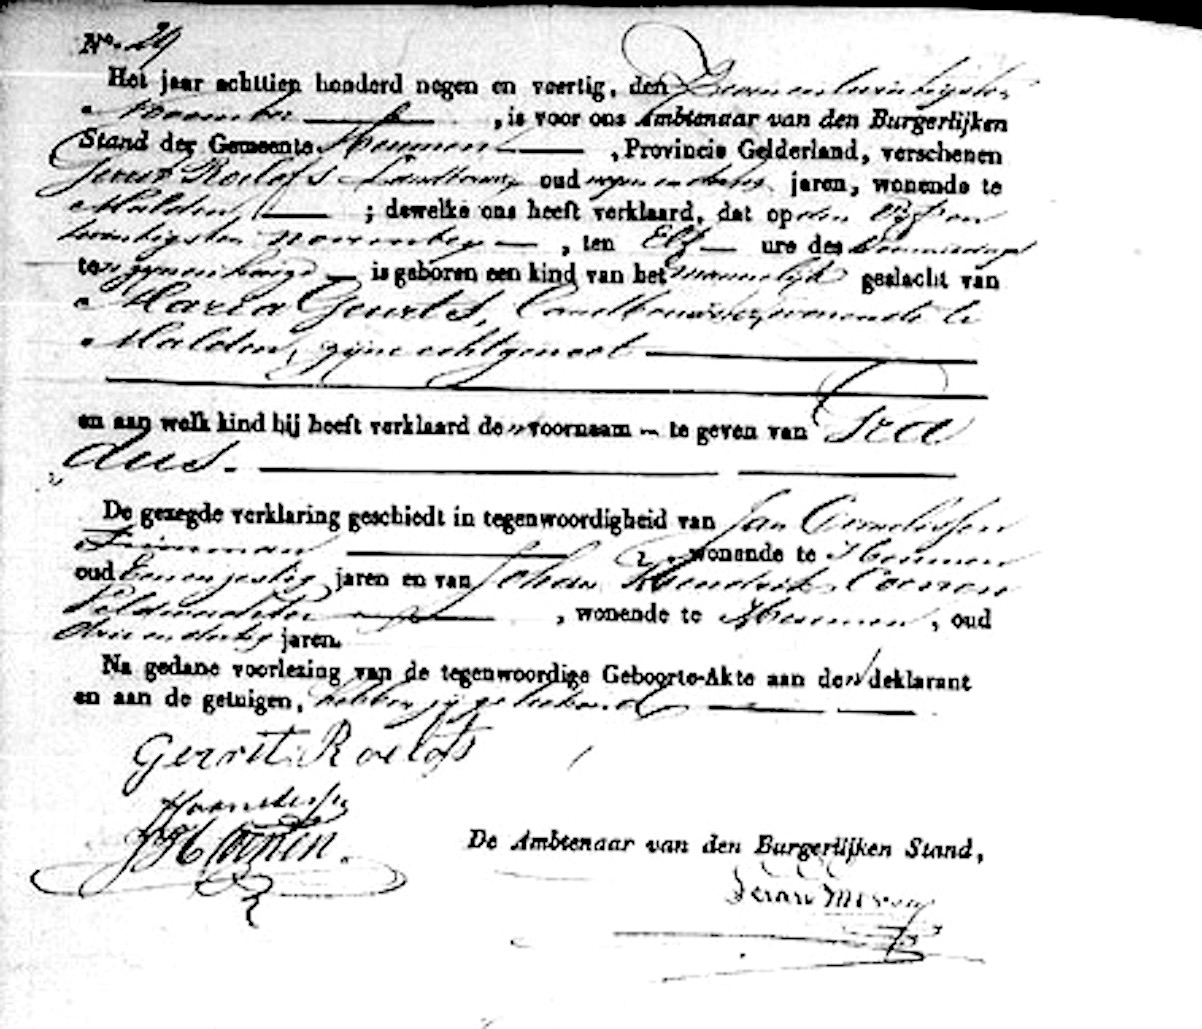 No. 29
Het jaar achttien honderd negen en veertig, den Zeven en twintigsten
November , is voor ons Ambtenaar van den Burgerlijken
Stand der Gemeente Heumen , Provincie Gelderland, verschenen
Gerrit Roelofs Landbouwer oud negen en dertig jaren, wonende te
Malden, ; dewelke ons heeft verklaard, dat op den Vijf en
twintigsten november , ten Elf ure des
te zijnen huize is geboren een kind van het mannelijk geslacht van
Maria Geurts, Landbouwster, wonende te
Malden, zijne echtgenoot
en aan welk kind hij heeft verklaard de voornaam te geven van Gra
dus.
De gezegde verklaring geschiedt in tegenwoordigheid van Jan Cornelissen
Timmerman , wonende te Heumen
oud Een en zestig jaren en van Johan Hendrik Coenen
Veldwachter , wonende te Heumen , oud
drie en dertig jaren.
Na gedane voorlezing van de tegenwoordige Geboorte-Akte aan den deklarant
en aan de getuigen, hebben zij geteekend
Gerrit Roelofs
JH Coenen.
De Ambtenaar van den Burgerlijken Stand,